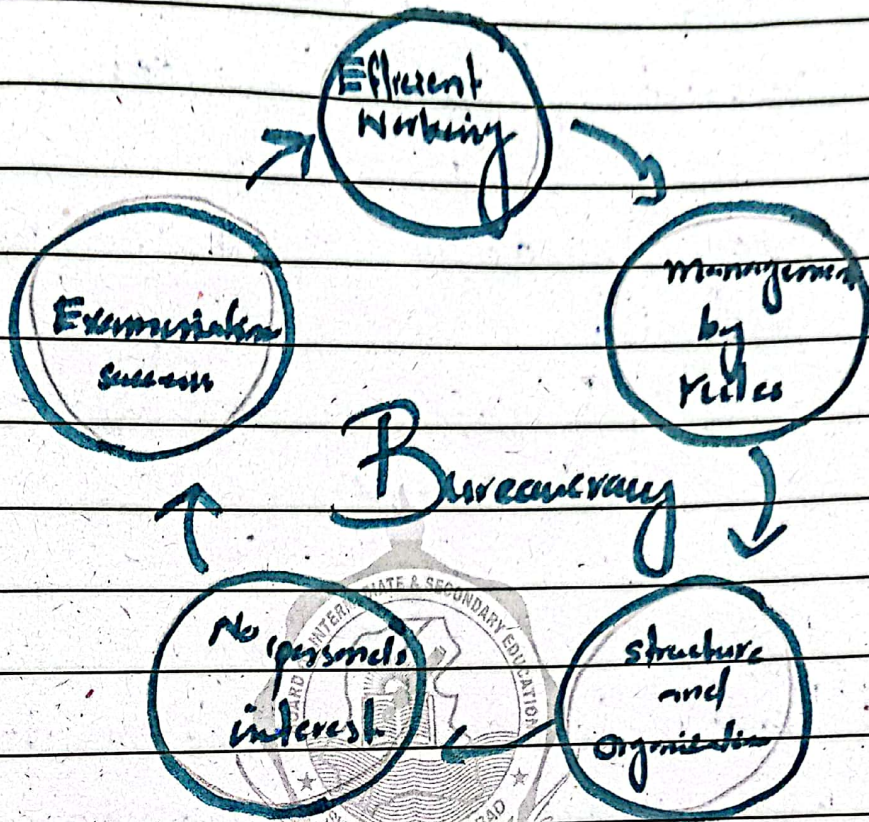 Efficient
Working
Management
by
rules
Examination
success
Bureaucracy
No personals
interest
structure
and
Organization
INTERMEDIATE & SECONDARY EDUCATION